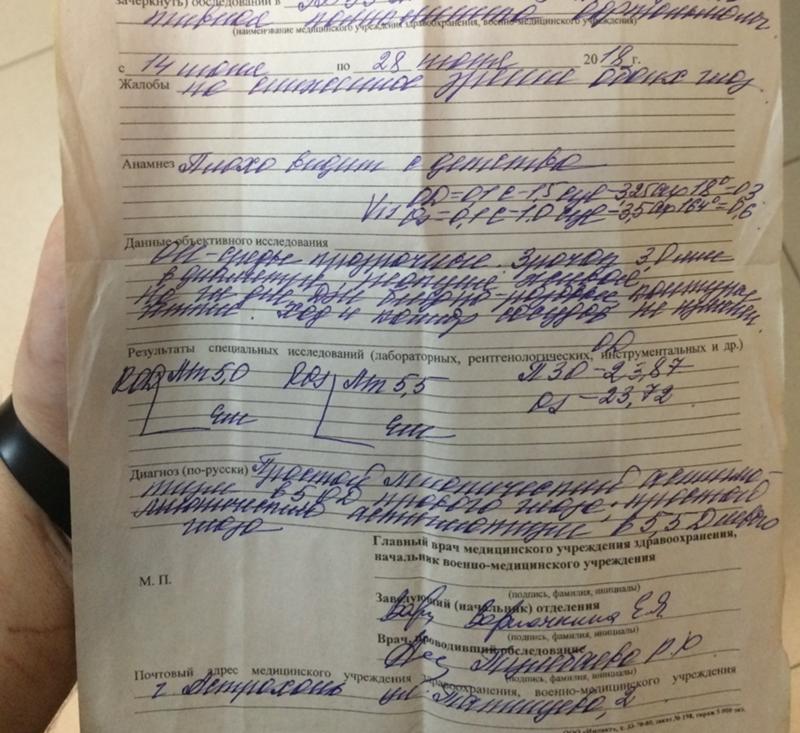 зачеркнуть) обследовании в
(наименование медицинского учреждения здравоохранения, военно-медицинского учреждения)
с 14 июня по 28 июня 2018 г.
Жалобы на сниженное зрение обоих глаз
Анамнез Плохо видит с детства
Vis OD = 0,1 с -1,5 cyl -3,25 ax 18° = 0,3
OS = 0,1 с -1,0 cyl -3,5 ax 164° = 0,6
Данные объективного исследования
ОИ - среды прозрачные. Зрачок 3,0 мм
в диаметре, реакция живая,
На гл. дне ДЗН бледно-розовые контуры
четкие. Ход и калибр сосудов не изменен
Результаты специальных исследований (лабораторных, рентгенологических, инструментальных и др.)
OD
ROD Am 5,0 ROS Am 5,5 ПЗО - 23,87
Em Em OS - 23,72
Диагноз (по-русски) Простой миопический астигма-
тизм в 5,0 Д правого глаза, простой
миопический астигматизм в 5,5 Д левого
глаза
Главный врач медицинского учреждения здравоохранения,
начальник военно-медицинского учреждения
М. П.
(подпись, фамилия, инициалы)
Заведующий (начальник) отделения
Е.Я.
(подпись, фамилия, инициалы)
Врач, проводивший обследование
Р.Ю
(подпись, фамилия, инициалы)
Почтовый адрес медицинского учреждения здравоохранения, военно-медицинского учреждения
г. Астрахань ул. Татищева, 2